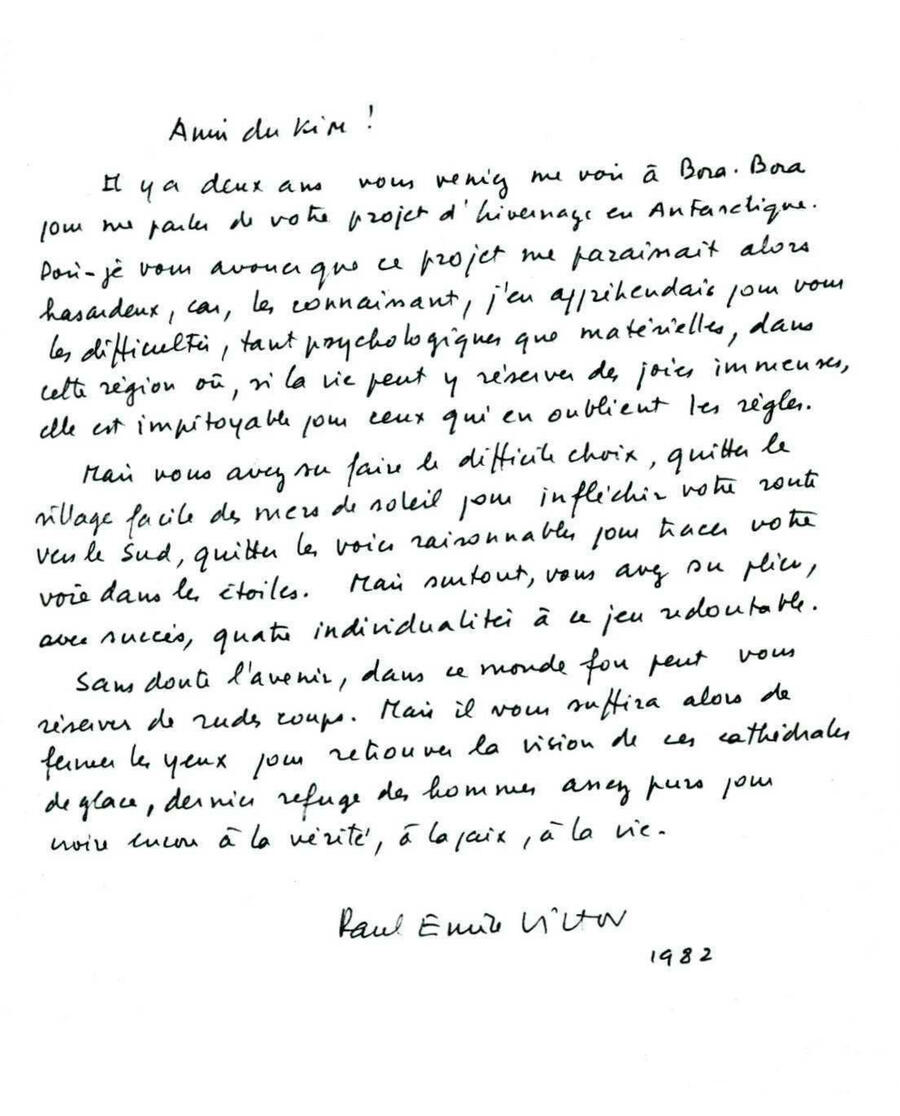 Amis du Kim !
Il y a deux ans vous veniez me voir à Bora-Bora
pour me parler de votre projet d'hivernage en Antarctique.
Dois-je vous avouer que ce projet me paraissait alors
hasardeux, car, les connaissant, j'en appréhendais pour vous
les difficultés, tant psychologiques que matérielles, dans
cette région où, si la vie peut y réserver des joies immenses,
elle est impitoyable pour ceux qui en oublient les règles.
Mais vous avez su faire le difficile choix, quitter le
sillage facile des mers de soleil pour infléchir votre route
vers le Sud, quitter les voies raisonnables pour tracer votre
voie dans les étoiles. Mais surtout, vous avez su plier,
avec succès, quatre individualités à ce jeu redoutable.
Sans doute l'avenir, dans ce monde fou peut vous
réserver de rudes coups. Mais il vous suffira alors de
fermer les yeux pour retrouver la vision de ces cathédrales
de glace, dernier refuge des hommes assez purs pour
croire encore à la vérité, à la paix, à la vie.
Paul Emile Victor
1982